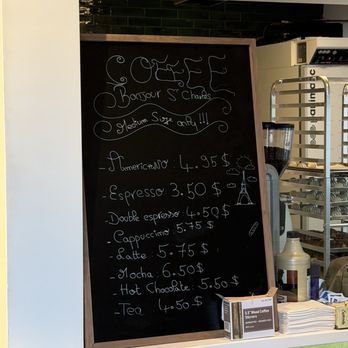 COFFEE
Bonjour St Charles
Medium Size only!!!
- Americano 4.95 $
- Espresso 3.50 $
- Double espresso 4.50 $
- Cappuccimo 5.75 $
- Latte 5.75 $
- Mocha 6.50 $
- Hot Chocolate 5.50 $
- Tea 4.50 $
5.5" Wood Coffee
Stirrers